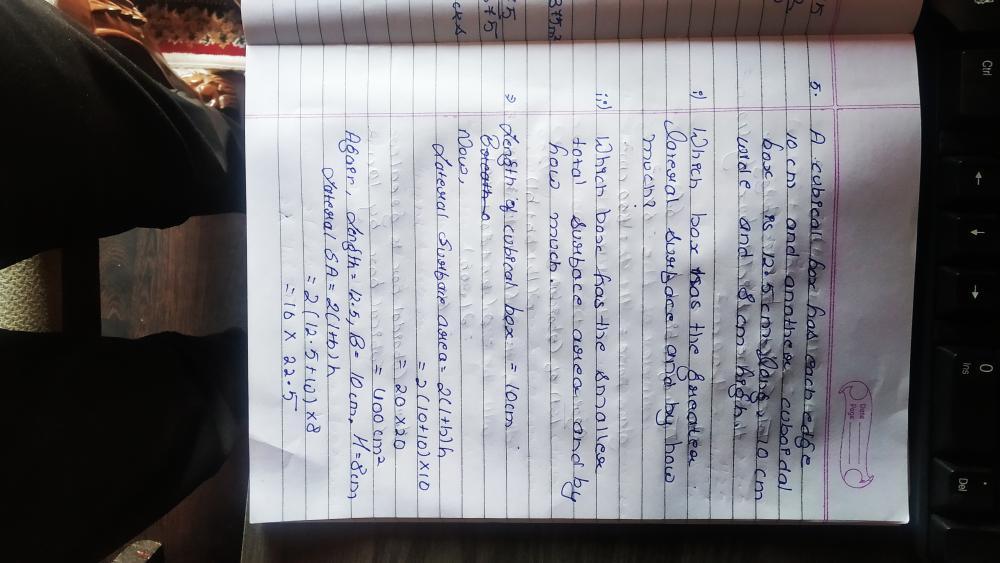 Date
Page
5. A cubical box has each edge
10 cm and another cuboidal
box is 12.5 cm long, 10 cm
wide and 8 cm high.
i) Which box has the greater
lateral surface and by how
much?
ii) Which box has the smaller
total surface area and by
how much.
⇒ Length of cubical box = 10cm
Now,
Lateral Surface area = 2(l+b)h
= 2(10+10)×10
= 20×20
= 400cm²
Again, Length = 12.5, B = 10cm, H = 8cm
Lateral SA = 2(l+b)h
= 2(12.5+10)×8
= 16 × 22.5
Ctrl
←
↓
→
0
Ins
.
Del